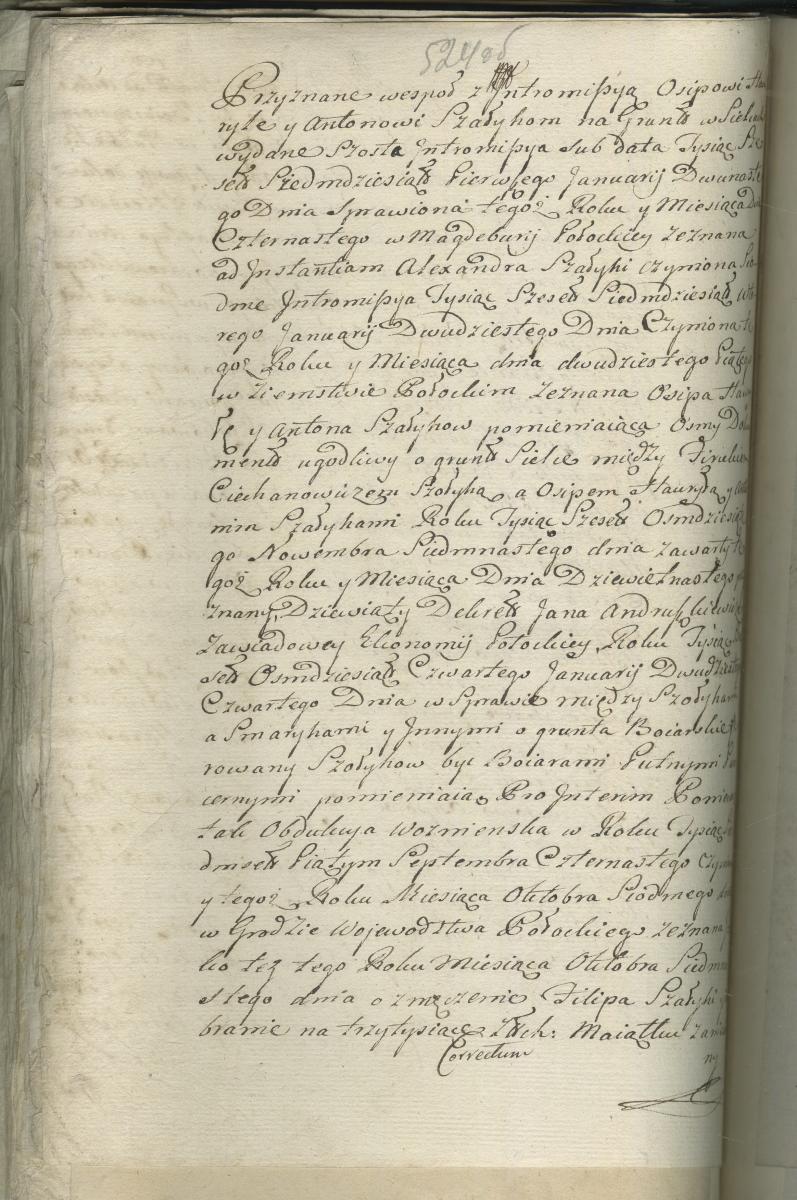 524 об
Przyznane wespoł z Intromißyą Osipowi Haw
ryle y Antonowi Szałyhom na Grunt w Sielcu
wydane Szosta Intromißya sub data Tysiąc Sze
set Siedmdziesiąt Pierwszego Januarij Dwunaste
go Dnia Sprawiona tegoż Roku y Miesiąca Dnia
Czternastego w Magdeburij Połockiey zeznana
ad Instantiam Alexandra Szałyhi czyniona Sio
dme Intromißya Tysiąc Szeset Siedmdziesiąt wto
rego Januarij Dwudziestego Dnia Czyniona te
goż Roku y Miesiąca dnia dwudziestego Piątego
w Ziemstwie Połockim zeznana Osipa Hawry
łę y Antona Szałyhow pomieniaiąca Osmy Doku
ment ugodliwy o grunt Sielce między
Ciechanowiczem Szołyhą a Osipem Hawryłą y Anto
nim Szałyhami Roku Tysiąc Szeset Osmdziesiąt
go Nowembra Siedmnastego dnia zawarty te
goż Roku y Miesiąca Dnia Dziewietnastego
znany, Dziewiąty Dekret Jana Andrußkiewicza
Zawiadowcy Ekonomij Połockiey Roku Tysiąc
set Osmdziesiąt Czwartego Januarij Dwudziestego
Czwartego Dnia w Sprawie między Szołyhami
a Smaryhami y Innymi o grunta Boiarskie
rowany Szołyhow być Boiarami Putnymi
cernymi pomieniaiąc Pro Interim Pomie
tak Obdukcya Woznienska w Roku Tysiąc
dmset Piątym Septembra Czternastego
y tegoż Roku Miesiąca Oktobra Siodmego dnia
w Grodzie Wojewodztwa Połockiego zeznana
ko też tego Roku Miesiąca Oktobra Siedmna
stego dnia o zmęczenie Filipa Szałyhi y
branie na trzytysiące Złtch: Maiątku
Correctum
ny